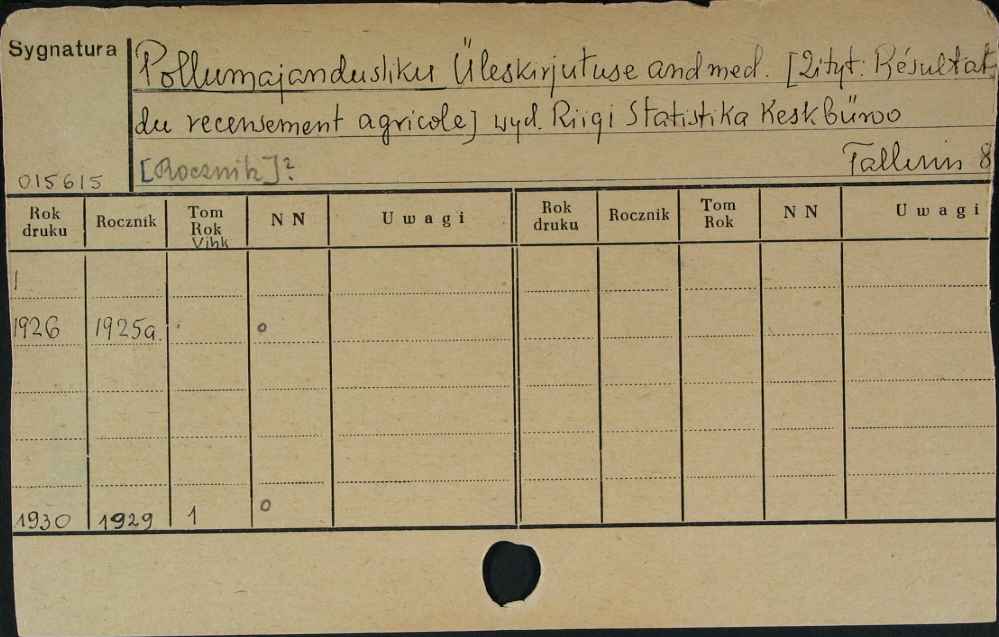 Sygnatura
Pollumajandusliku Üleskirjutuse andmed. [2ityt: Résultat
du recensement agricole] wyd. Riigi Statistika Keskbüroo
[Rocznik]?
Tallinn 8
015615
Rok druku Rocznik Tom Rok Vihk NN Uwagi Rok druku Rocznik Tom Rok NN Uwagi
1926 1925a. o
1930 1929 1 o